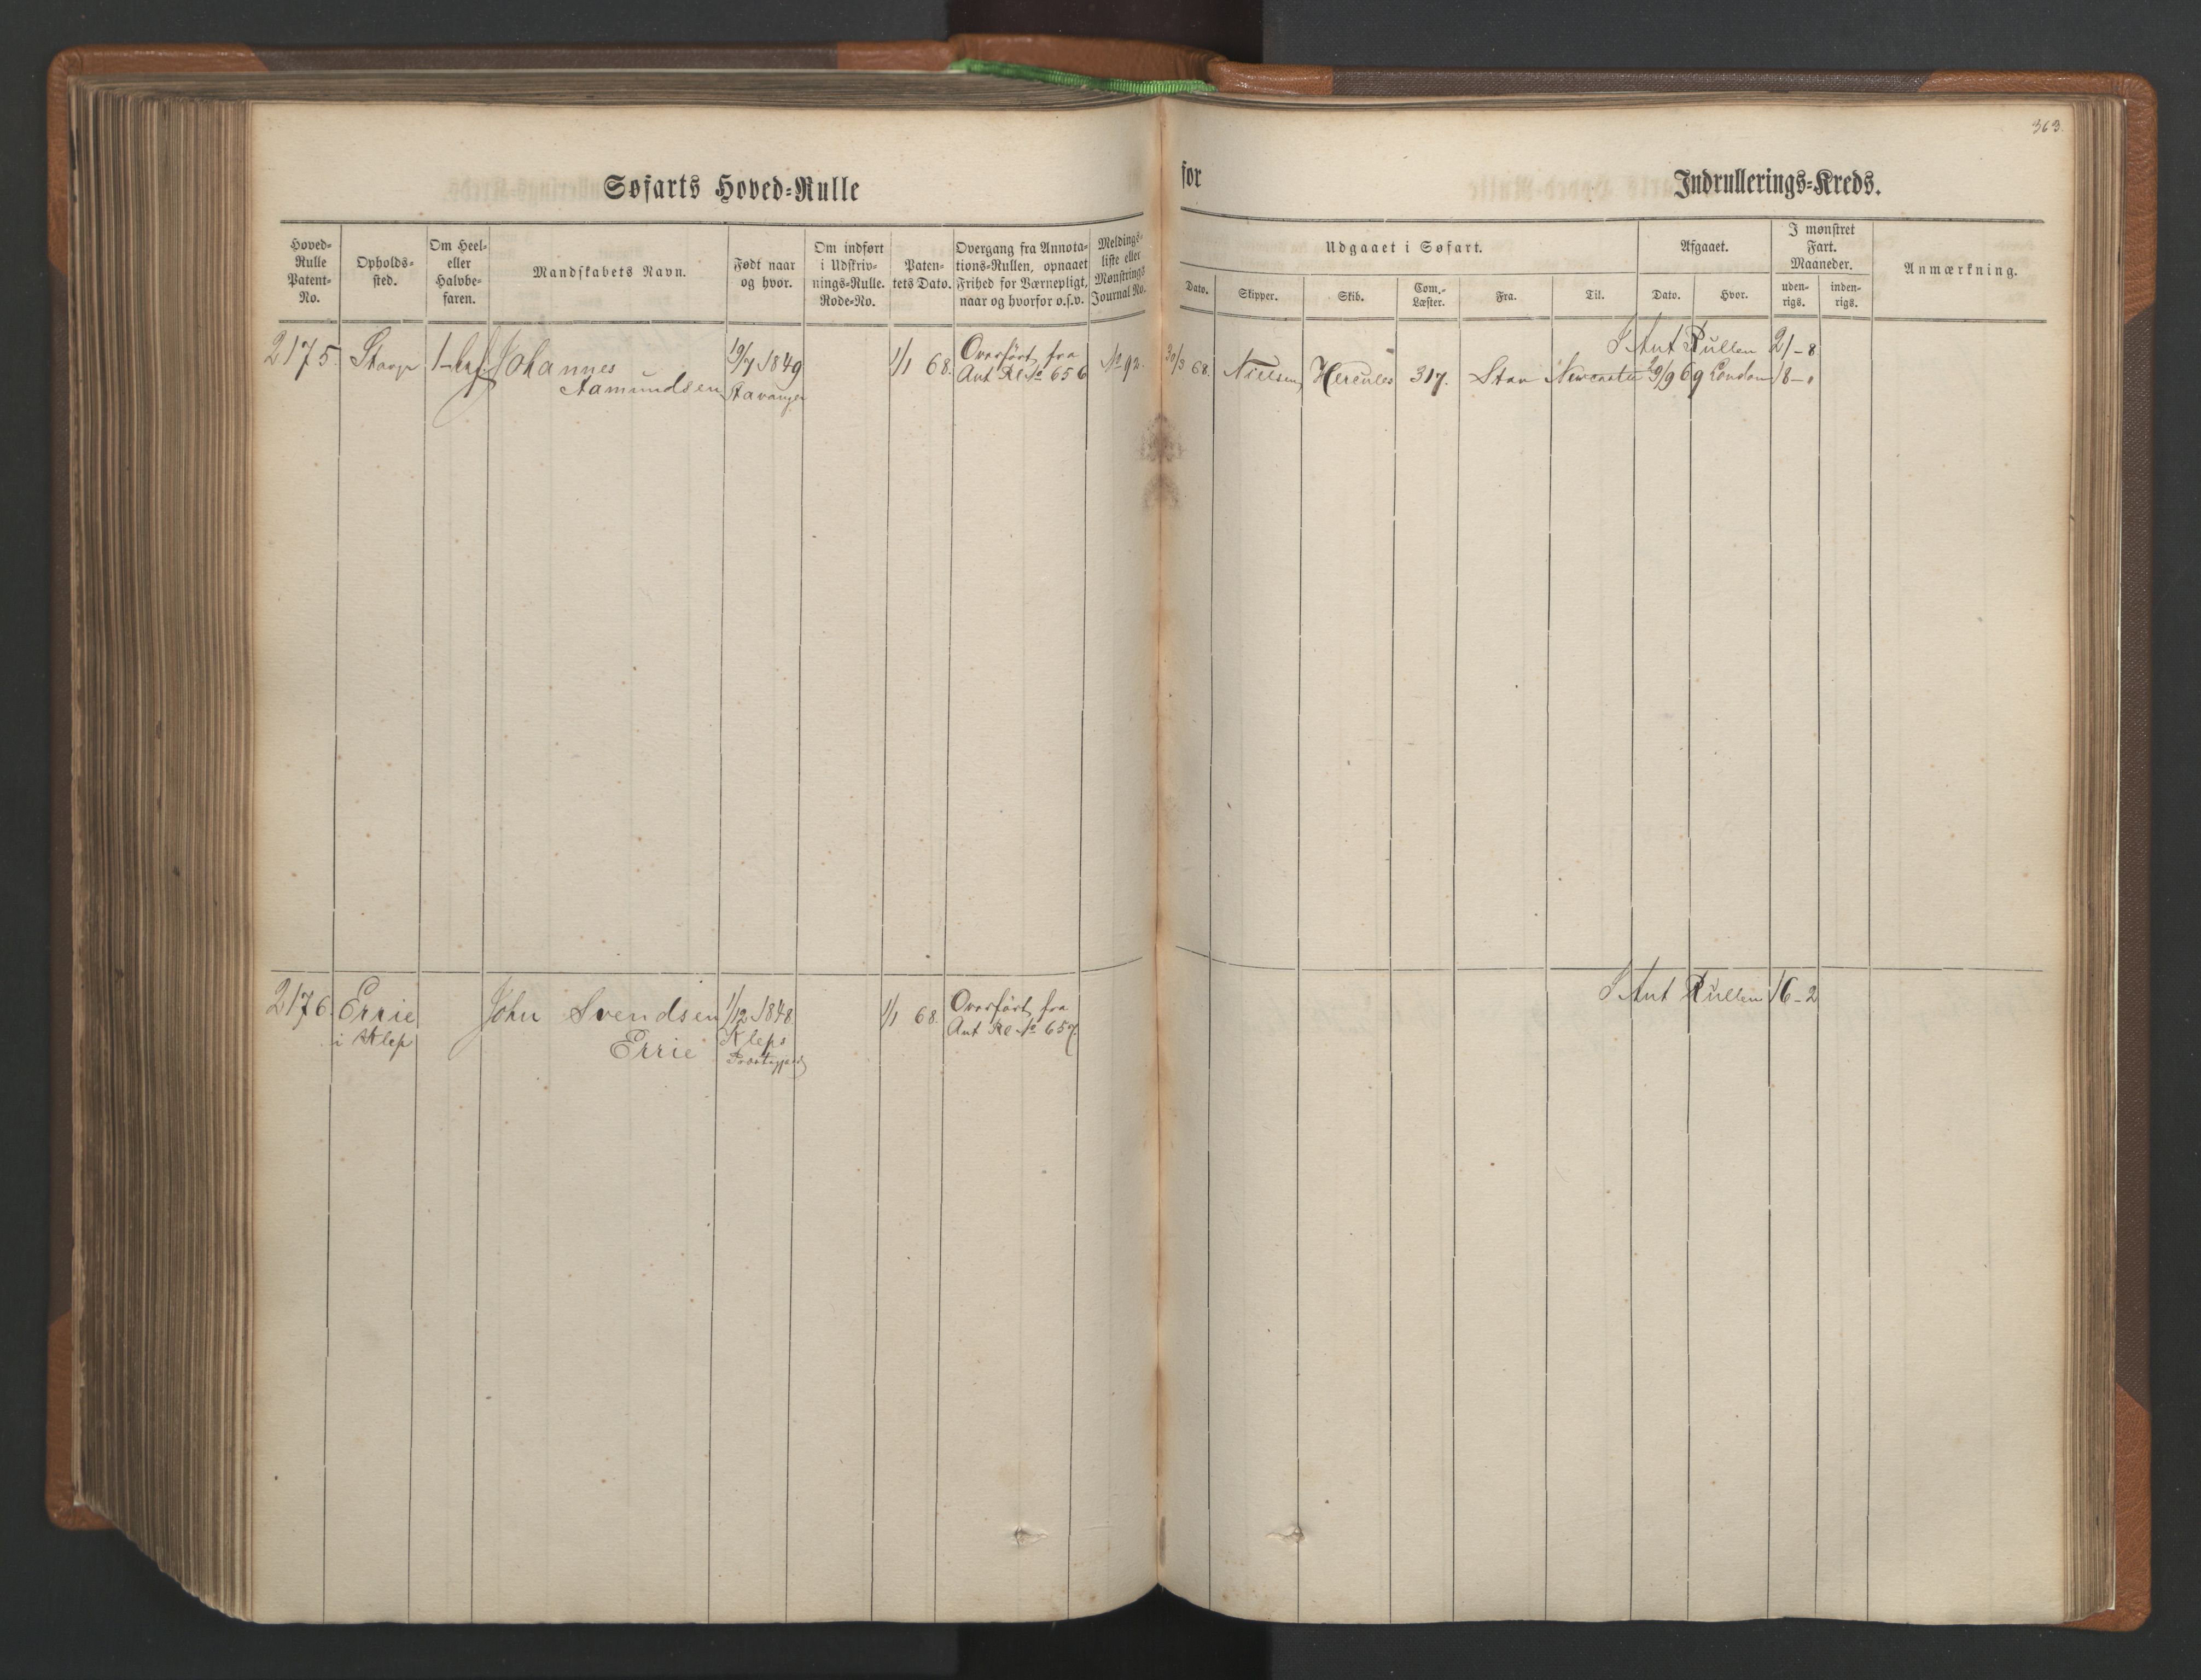 363.
Søfarts Hoved=Rulle for Indrullerings=Kreds.
Hoved=Rulle Patent=No.
Opholds=sted.
Om Heel= eller Halvbe=faren.
Mandskabets Navn.
Født naar og hvor.
Om indført i Udskriv=nings=Rulle. Rode=No.
Paten=tets Dato.
Overgang fra Annota=tions=Rullen, opnaaet Frihed for Værnepligt, naar og hvorfor o.s.v.
Meldings=liste eller Mønstrings Journal No.
Udgaaet i Søfart.
Dato.
Skipper.
Skib.
Com.=Læster.
Fra.
Til.
Afgaaet.
Dato.
Hvor.
I mønstret Fart. Maaneder.
uden=rigs.
inden=rigs.
Anmærkning.
2175. Johannes 19/7 1849 1/1 68. Overført fra
Aamundsen Stavanger Ant Rl No 656
I Ant Rullen 21-8
30/3 68. Nielsen Hercules 317. Stav Newcastle 69 London 18-
2176. Errie John Svendsen 1/12 1848 1/1 68. Overført fra I Ant Rullen 16-2
i Klep Errie Kleps Ant Rl No 657.
Præstegjeld